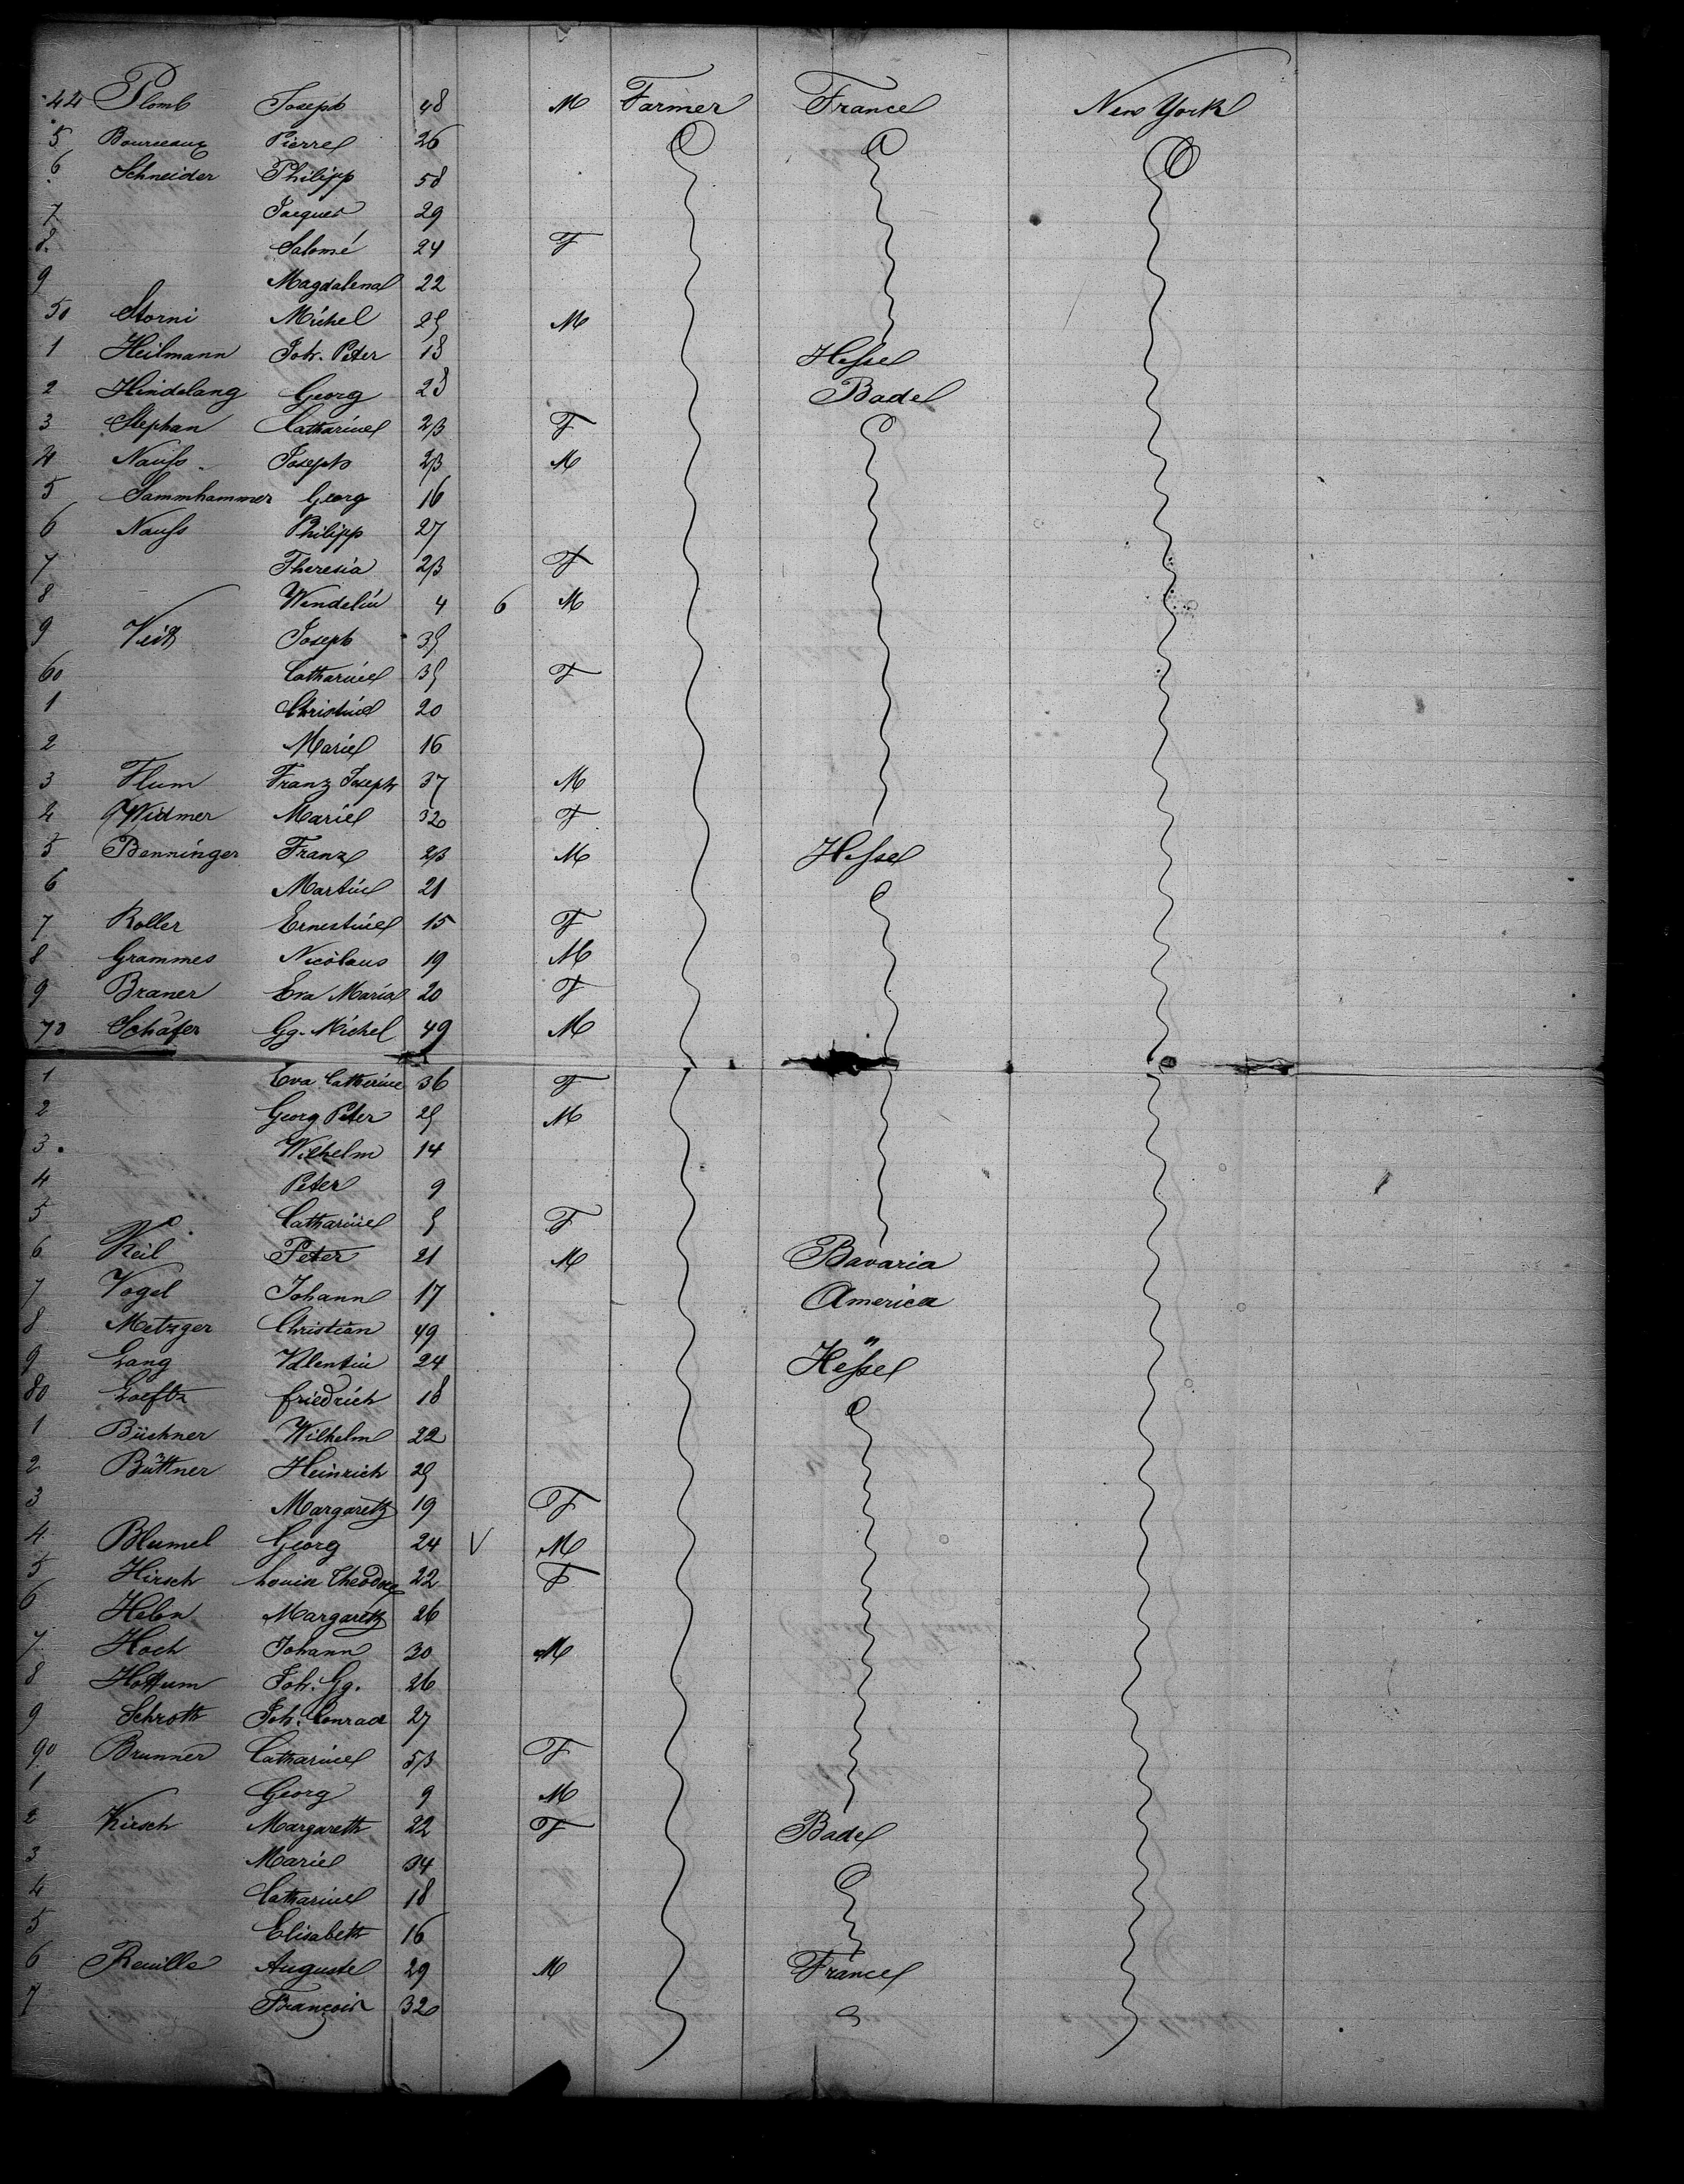 44 Plomb Joseph 48 M Farmer France New York
5 Bourceaux Pierre 26
6 Schneider Philipp 58
7 Jacques 29
8. Salomé 24 F
9 Magdalena 22
50 Storni Michel 25 M
1 Heilmann Joh. Peter 18 Hesse
2 Hindelang Georg 28 Bade
3 Stephan Catharine 23 F
4 Nauss Joseph 23 M
5 Sammhammer Georg 16
6 Nauss Philipp 27
7 Theresia 23 F
8 Wendelin 4 6 M
9 Veit Joseph 35
60 Catharine 35 F
1 Christine 20
2 Marie 16
3 Flum Franz Joseph 37 M
4 Widmer Marie 32 F
5 Benninger Franz 23 M Hesse
6 Martin 21
7 Roller Ernestine 15 F
8 Grammes Nicolaus 19 M
9 Braner Eva Maria 20 F
70 Schäfer Gg. Michel 49 M
1 Eva Catherine 36 F
2 Georg Peter 25 M
3. Wilhelm 14
4 Peter 9
5 Catharine 5 F
6 Keil Peter 21 M Bavaria
7 Vogel Johann 17 America
8 Metzger Christian 49 "
9 Lang Valentin 24 Hesse
80 Loeftz Friedrich 18
1 Büchner Wilhelm 22
2 Büttner Heinrich 25
3 Margareth 19 F
4 Blumel Georg 24 V M
5 Hirsch Louise Theodore 22 F
6 Helen Margareth 26
7 Hoch Johann 30 M
8 Hottum Joh. Gg. 26
9 Schroth Joh. Conrad 27
90 Brunner Catharine 53 F
1 Georg 9 M
2 Kirsch Margareth 22 F Bade
3 Marie 34
4 Catharine 18
5 Elisabeth 16
6 Reuille Auguste 29 M France
7 François 32